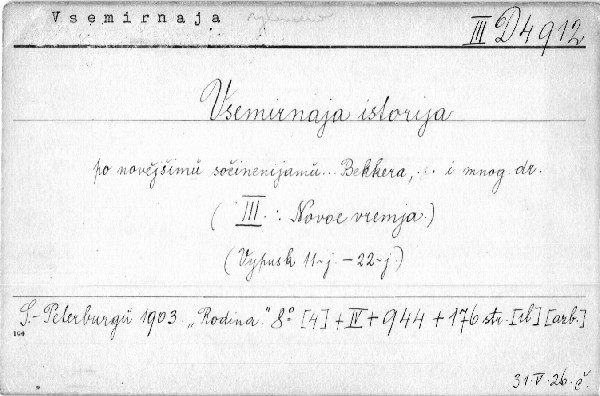 Vsemirnaja
III D 4912
Vsemirnaja istorija
po novějšimŭ sočinenijamŭ... Bekkera, .. i mnog. dr.
( III. : Novoe vremja.)
(Vypusk 11-j. - 22-j.)
S.-Peterburgŭ 1903 „Rodina." 8° [4] + IV + 944 + 176 str. [il] [arb.]
31.V.26. č.